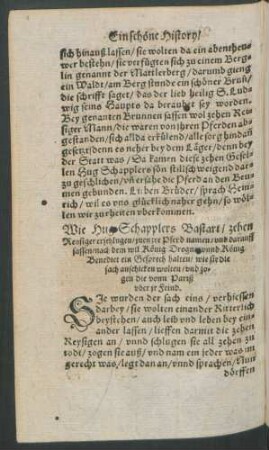 Ein schöne History/
sich hinauß lassen/ sie wolten da ein abenthew-
wer bestehn/ sie verfügten sich zu einem Berg-
lin genannt der Mattlerberg/ darumb gieng
ein Waldt/ am Berg stunde ein schöner Bruñ/
die schrifft saget/ das der lieb heilig S. Lud-
wig seins Haupts da beraubet sey worden.
Bey genanten Brunnen sassen wol zehen Rey-
siger Mann/ die waren von jhren Pferden ab-
gestanden/ sich alda erkülend/ alle sorg hindañ
gesetzt/ denn es neher bey dem Läger/ denn bey
der Statt was/ Da kamen diese zehen Gesel-
len Hug Schapplers sön stillschweigend dar-
zu geschlichen/ vñ ersahe die Pferd an den Bru-
nen gebunden. Lieben Brüder/ sprach Hein-
rich/ wil es vns glücklich naher gehn/ so wöl-
len wir zu rheiten vberkommen.
Wie Hug Schapplers Bastart/ zehen
Reysiger erschlügen/ jnen jre Pferd namen/ vnd darauff
sassen/ nach dem wil König Drogue vnnd König
Benedict ein Gesprech halten/ wie sie die
sach anschicken wolten/ vnd zu-
gen die venn Pariß
vber jr Feind.
SJe wurden der sach eins/ verhiessen
darbey/ sie wolten einander Ritterlich
beystehen/ auch leib vnd leben bey ein-
ander lassen/ lieffen darmit die zehen
Reysigen an/ vnnd schlugen sie all zehen zu
todt/ zogen sie auß/ vnd nam ein jeder was im
gerecht was/ legt dan an/ vnnd sprachen/ Nun
dörffen